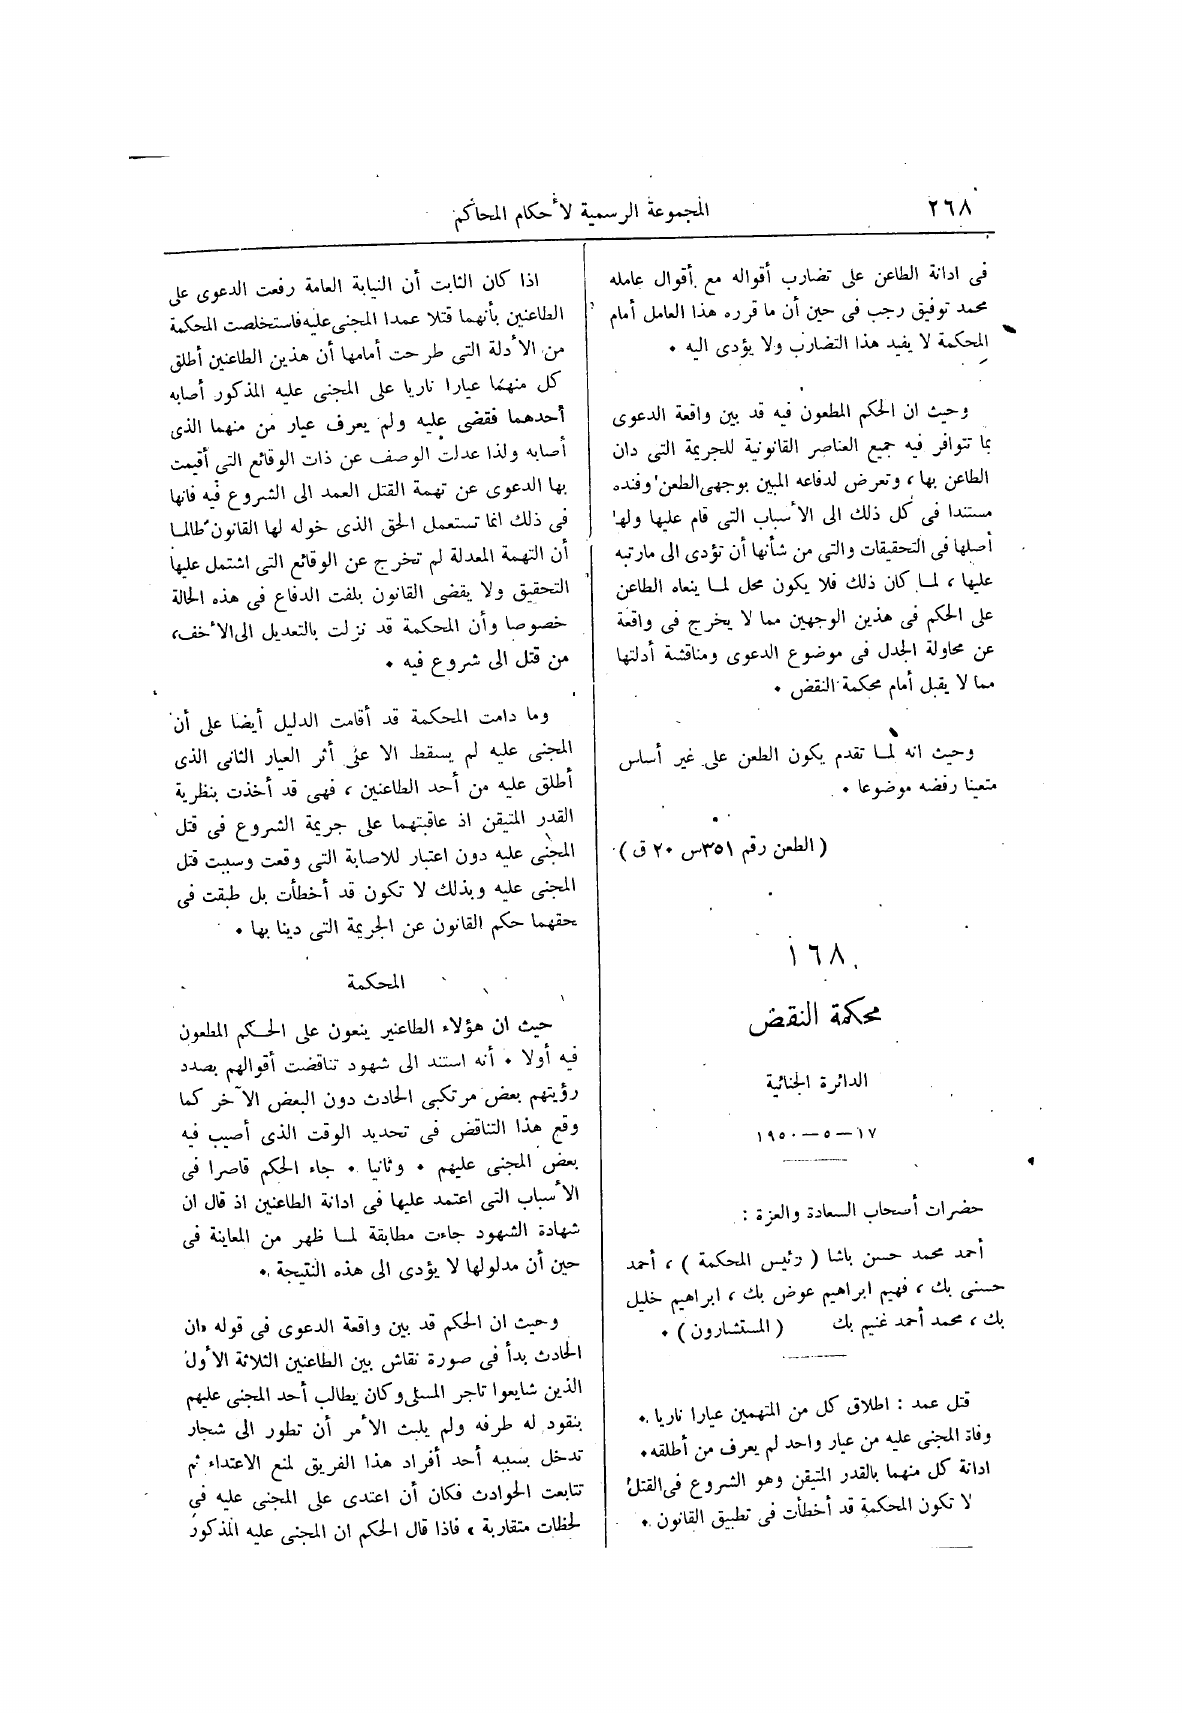 ٢٦٨
المجموعة الرسمية لأحكام المحاكم
فى ادانة الطاعن على تضارب أقواله مع أقوال عامله
محمد توفيق رجب فى حين أن ما قرره هذا العامل أمام
المحكمة لا يفيد هذا التضارب ولا يؤدى اليه ٠
وحيث ان الحكم المطعون فيه قد بين واقعة الدعوى
بما تتوافر فيه جميع العناصر القانونية للجريمة التى دان
الطاعن بها ، وتعرض لدفاعه المبين بوجهى الطعن وفنده
مستندا فى كل ذلك الى الأسباب التى قام عليها ولها
أصلها فى التحقيقات والتى من شأنها أن تؤدى الى مارتبه
عليها ، لما كان ذلك فلا يكون محل لما ينعاه الطاعن
على الحكم فى هذين الوجهين مما لا يخرج فى واقعة
عن محاولة الجدل فى موضوع الدعوى ومناقشة أدلتها
مما لا يقبل أمام محكمة النقض ٠
وحيث انه لما تقدم يكون الطعن على غير أساس
متعينا رفضه موضوعا ٠
( الطعن رقم ٣٥١س ٢٠ ق )
١٦٨
محكمة النقض
الدائرة الجنائية
١٧ — ٥ — ١٩٥٠
حضرات أصحاب السعادة والعزة :
أحمد محمد حسن باشا ( رئيس المحكمة ) ، أحمد
حسنى بك ، فهيم ابراهيم عوض بك ، ابراهيم خليل
بك ، محمد أحمد غنيم بك ( المستشارون ) ٠
قتل عمد : اطلاق كل من المتهمين عيارا ناريا ٠
وفاة المجنى عليه من عيار واحد لم يعرف من أطلقه ٠
ادانة كل منهما بالقدر المتيقن وهو الشروع فى القتل
لا تكون المحكمة قد أخطأت فى تطبيق القانون ٠
اذا كان الثابت أن النيابة العامة رفعت الدعوى على
الطاعنين بأنهما قتلا عمدا المجنى عليه فاستخلصت المحكمة
من الأدلة التى طرحت أمامها أن هذين الطاعنين أطلق
كل منهما عيارا ناريا على المجنى عليه المذكور أصابه
أحدهما فقضى عليه ولم يعرف عيار من منهما الذى
أصابه ولذا عدلت الوصف عن ذات الوقائع التى أقيمت
بها الدعوى عن تهمة القتل العمد الى الشروع فيه فانها
فى ذلك انما تستعمل الحق الذى خوله لها القانون طالما
أن التهمة المعدلة لم تخرج عن الوقائع التى اشتمل عليها
التحقيق ولا يقضى القانون بلفت الدفاع فى هذه الحالة
خصوصا وأن المحكمة قد نزلت بالتعديل الى الأخف ،
من قتل الى شروع فيه ٠
وما دامت المحكمة قد أقامت الدليل أيضا على أن
المجنى عليه لم يسقط الا على أثر العيار الثانى الذى
أطلق عليه من أحد الطاعنين ، فهى قد أخذت بنظرية
القدر المتيقن اذ عاقبتهما على جريمة الشروع فى قتل
المجنى عليه دون اعتبار للاصابة التى وقعت وسببت قتل
المجنى عليه وبذلك لا تكون قد أخطأت بل طبقت فى
حقهما حكم القانون عن الجريمة التى دينا بها ٠
المحكمة
حيث ان هؤلاء الطاعنين ينعون على الحكم المطعون
فيه أولا ٠ أنه استند الى شهود تناقضت أقوالهم بصدد
رؤيتهم بعض مرتكبى الحادث دون البعض الآخر كما
وقع هذا التناقض فى تحديد الوقت الذى أصيب فيه
بعض المجنى عليهم ٠ وثانيا ٠ جاء الحكم قاصرا فى
الأسباب التى اعتمد عليها فى ادانة الطاعنين اذ قال ان
شهادة الشهود جاءت مطابقة لما ظهر من المعاينة فى
حين أن مدلولها لا يؤدى الى هذه النتيجة ٠
وحيث ان الحكم قد بين واقعة الدعوى فى قوله «ان
الحادث بدأ فى صورة نقاش بين الطاعنين الثلاثة الأول
الذين شايعوا تاجر المسلى وكان يطالب أحد المجنى عليهم
بنقود له طرفه ولم يلبث الأمر أن تطور الى شجار
تدخل بسببه أحد أفراد هذا الفريق لمنع الاعتداء ثم
تتابعت الحوادث فكان أن اعتدى على المجنى عليه فى
لحظات متقاربة » فاذا قال الحكم ان المجنى عليه المذكور